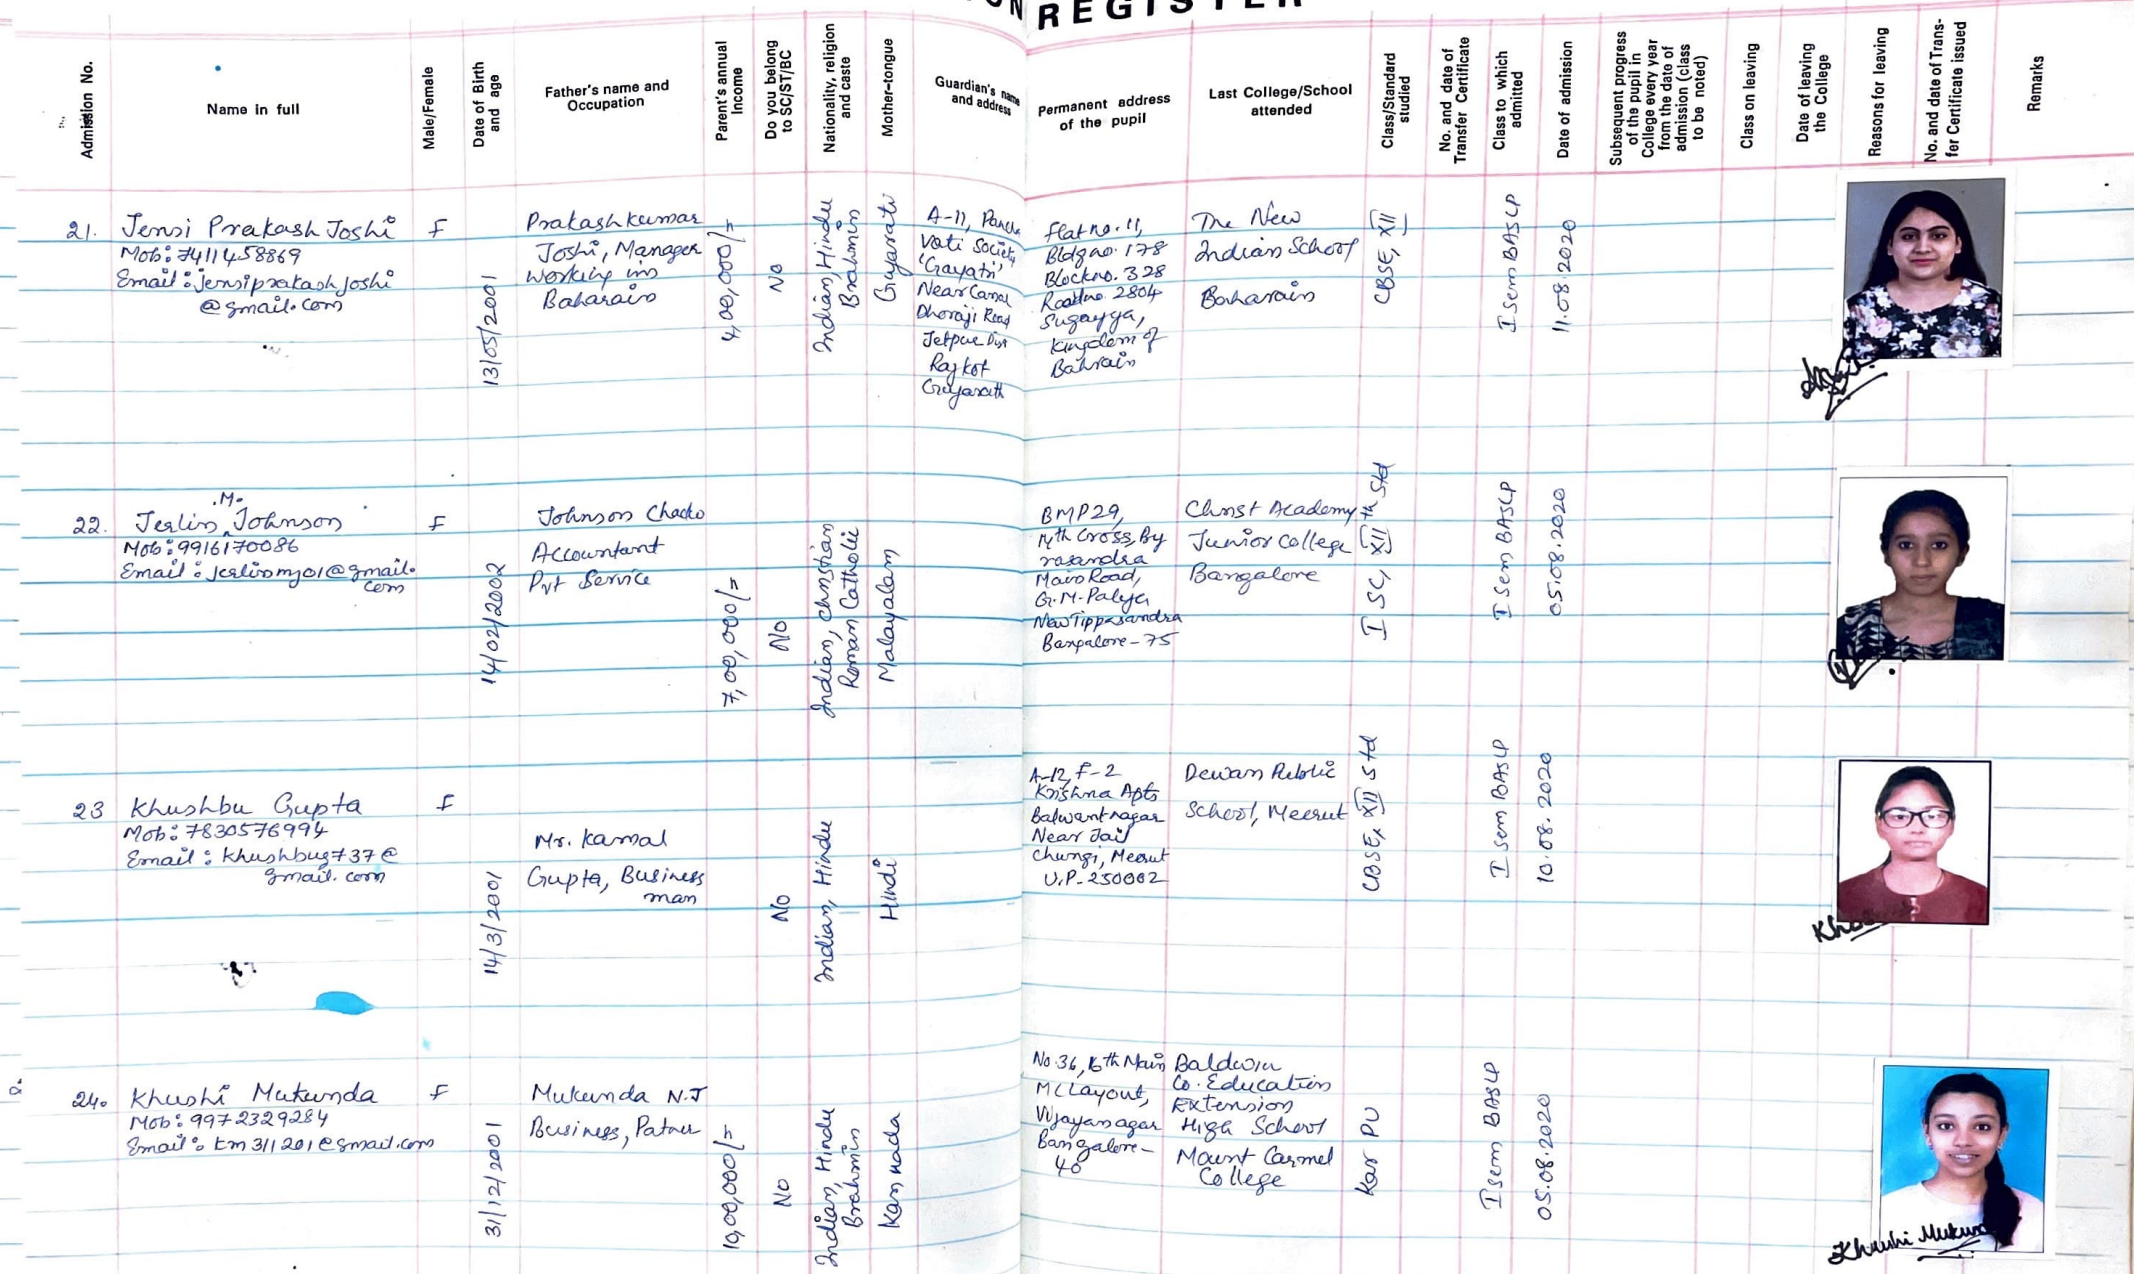 REGISTER
Admission No.
Name in full
Male/Female
Date of Birth
and age
Father's name and
Occupation
Parent's annual
Income
Do you belong
to SC/ST/BC
Nationality, religion
and caste
Mother-tongue
Guardian's name
and address
Permanent address
of the pupil
Last College/School
attended
Class/Standard
studied
No. and date of
Transfer Certificate
Class to which
admitted
Date of admission
Subsequent progress
of the pupil in
College every year
from the date of
admission (class
to be noted)
Class on leaving
Date of leaving
the College
Reasons for leaving
No. and date of Trans-
fer Certificate issued
Remarks
21.
Jensi Prakash Joshi
Mob: 7411458869
Email: jensiprakashjoshi
@gmail.com
F
13/05/2001
Prakashkumar
Joshi, Manager
Working in
Baharain
4,00,000/=
No
Indian, Hindu
Brahmin
Gujarati
A-11, Pancha
Vati Society
'Gayatri'
Near Canal
Dhoraji Road
Jetpur Dist
Rajkot
Gujarath
Flat no. 11,
Bldg no. 178
Block no. 328
Road no. 2804
Sugayya,
Kingdom of
Bahrain
The New
Indian School
Baharain
CBSE, XII
I Sem BASLP
11.08.2020
22.
.M.
Jerlin Johnson
Mob: 9916170086
Email: jerlinmj01@gmail.
com
F
14/02/2002
Johnson Chacko
Accountant
Pvt Service
7,00,000/=
No
Indian, Christian
Roman Catholic
Malayalam
BMP29,
14th Cross, By
rasandra
Main Road,
G.M. Palya
New Tippasandra
Bangalore-75
Christ Academy
Junior college
Bangalore
I SC, XII th Std
I Sem BASLP
05.08.2020
23
Khushbu Gupta
Mob: 7830576994
Email: khushbug737@
gmail.com
F
14/3/2001
Mr. Kamal
Gupta, Business
man
No
Indian, Hindu
Hindi
A-12, F-2
Krishna Apts
Balwantnagar
Near Jail
Chungi, Meerut
U.P-250002
Dewan Public
School, Meerut
CBSE, XII Std
I Sem BASLP
10.08.2020
24.
Khushi Mukunda
Mob: 9972329284
Email: km311201@gmail.com
F
31/12/2001
Mukunda N.J
Business, Patner
10,00,000/=
No
Indian, Hindu
Brahmin
Kannada
No 36, 16th Main
MC Layout,
Vijayanagar
Bangalore-
40
Baldwin
Co. Education
Extension
High School
Mount Carmel
College
Kar PU
I Sem BASLP
05.08.2020
Khushi Mukun